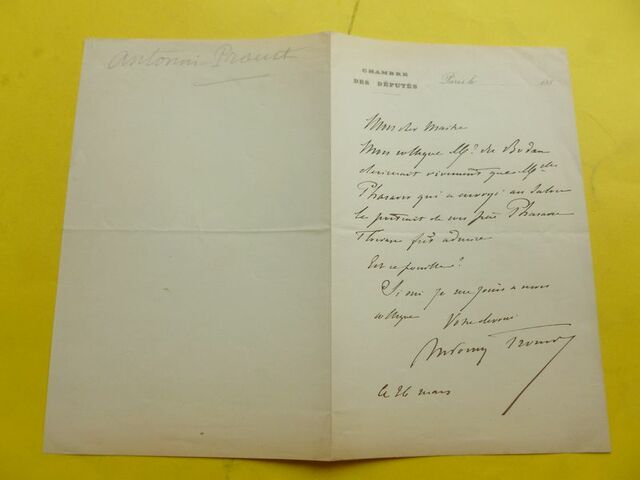 Antonin Proust
CHAMBRE
DES DÉPUTÉS
Paris le 188
Mon cher Maître
Mon collègue Mr. du Bodan
désirerait vivement que Mlle
qui a envoyé au Salon
le portrait de son père
fût admise
Est ce possible?
Si oui je me joins à mon
collègue
Votre dévoué
Antonin Proust
Ce 26 mars